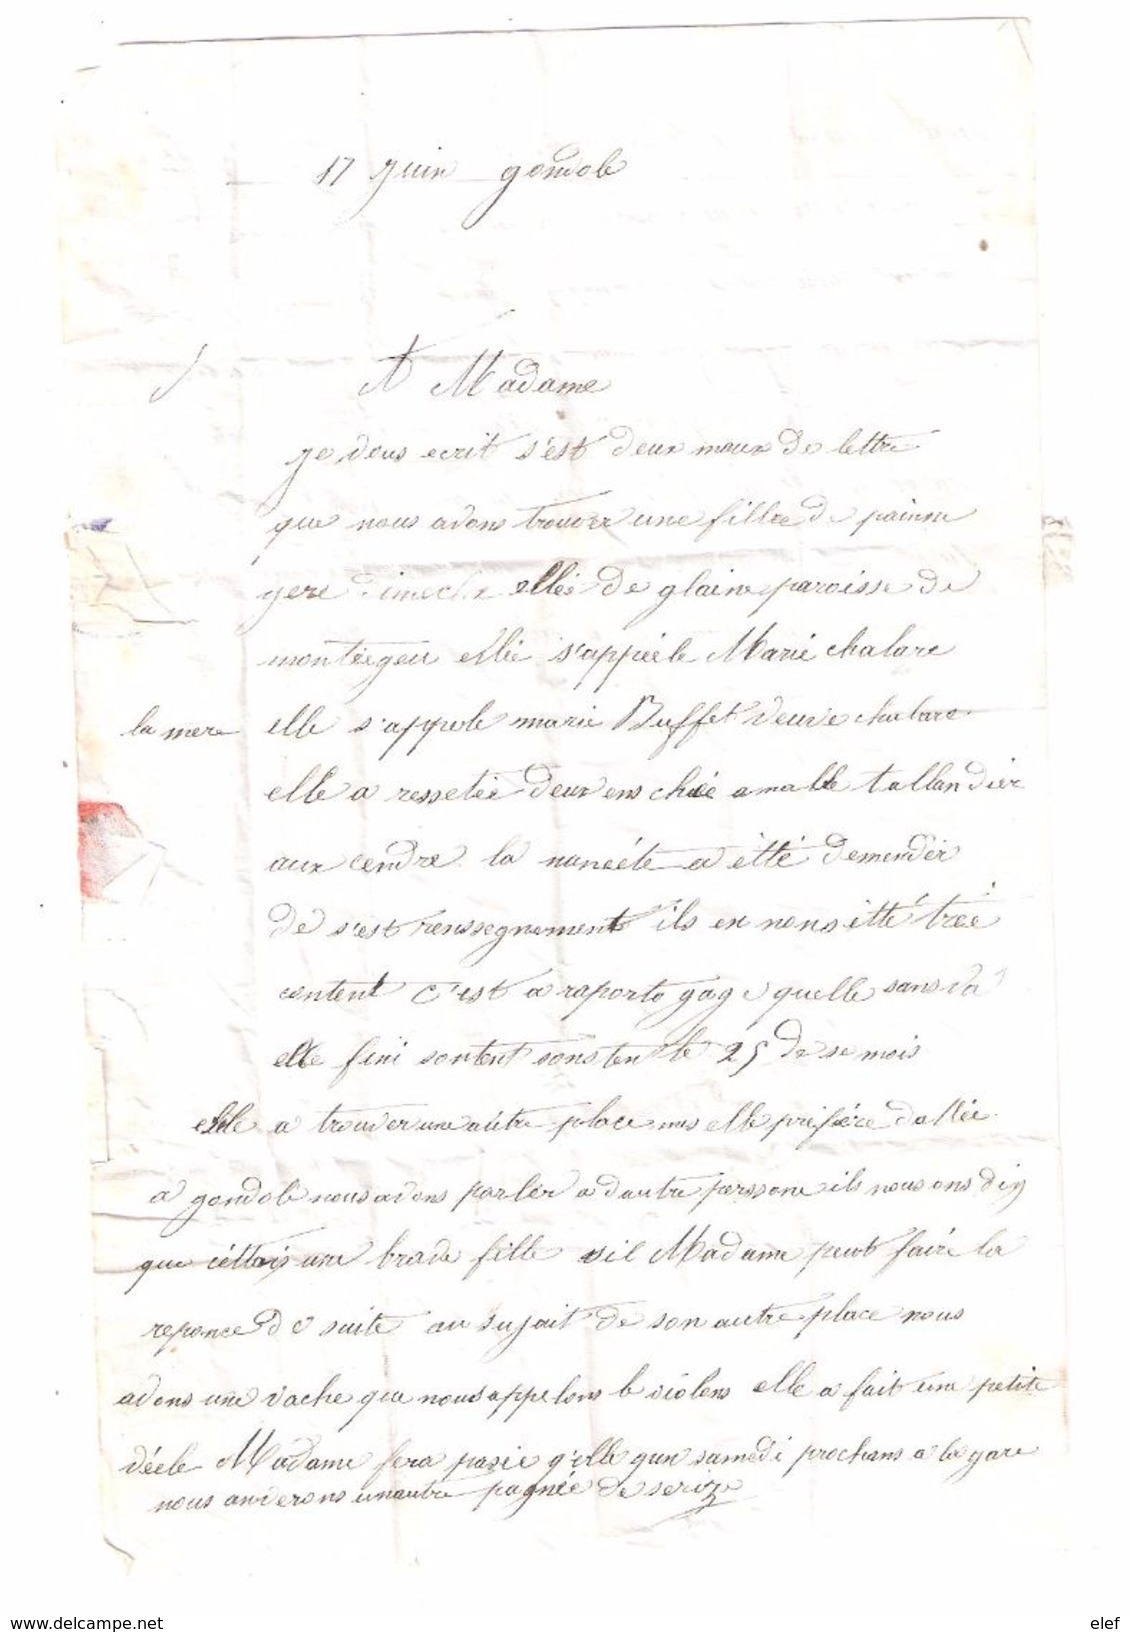 17 juin gondole
A Madame
je vous ecrit s'est deux maux de lettre
que nous avons trouver une fille de
elles de glaine paroisse de
montiegeu elle s'appéele Marie chalare
la mere elle s'appele marie Buffet veuve chalare
elle a ressetée deux ens chée amalle tallandier
aux cendre la a étté demender
de s'est renssegnement ils en nons étté treé
content c'est a raporto gage quelle sans va
elle fini le 25 de se mois
elle a trouver une autre place mes elle prifère dallée
a gondole nous avons parler a dautre perssone ils nous ons diy
que cettais une brave fille sil Madame peut faire la
reponce de suite au sujait de son autre place nous
avons une vache que nous appelons le violens elle a fait une petite
véele Madame fera pasée quelle qun samedi prochans a la gare
nous anverons unautre pagnée de serize
www.delcampe.net
elef